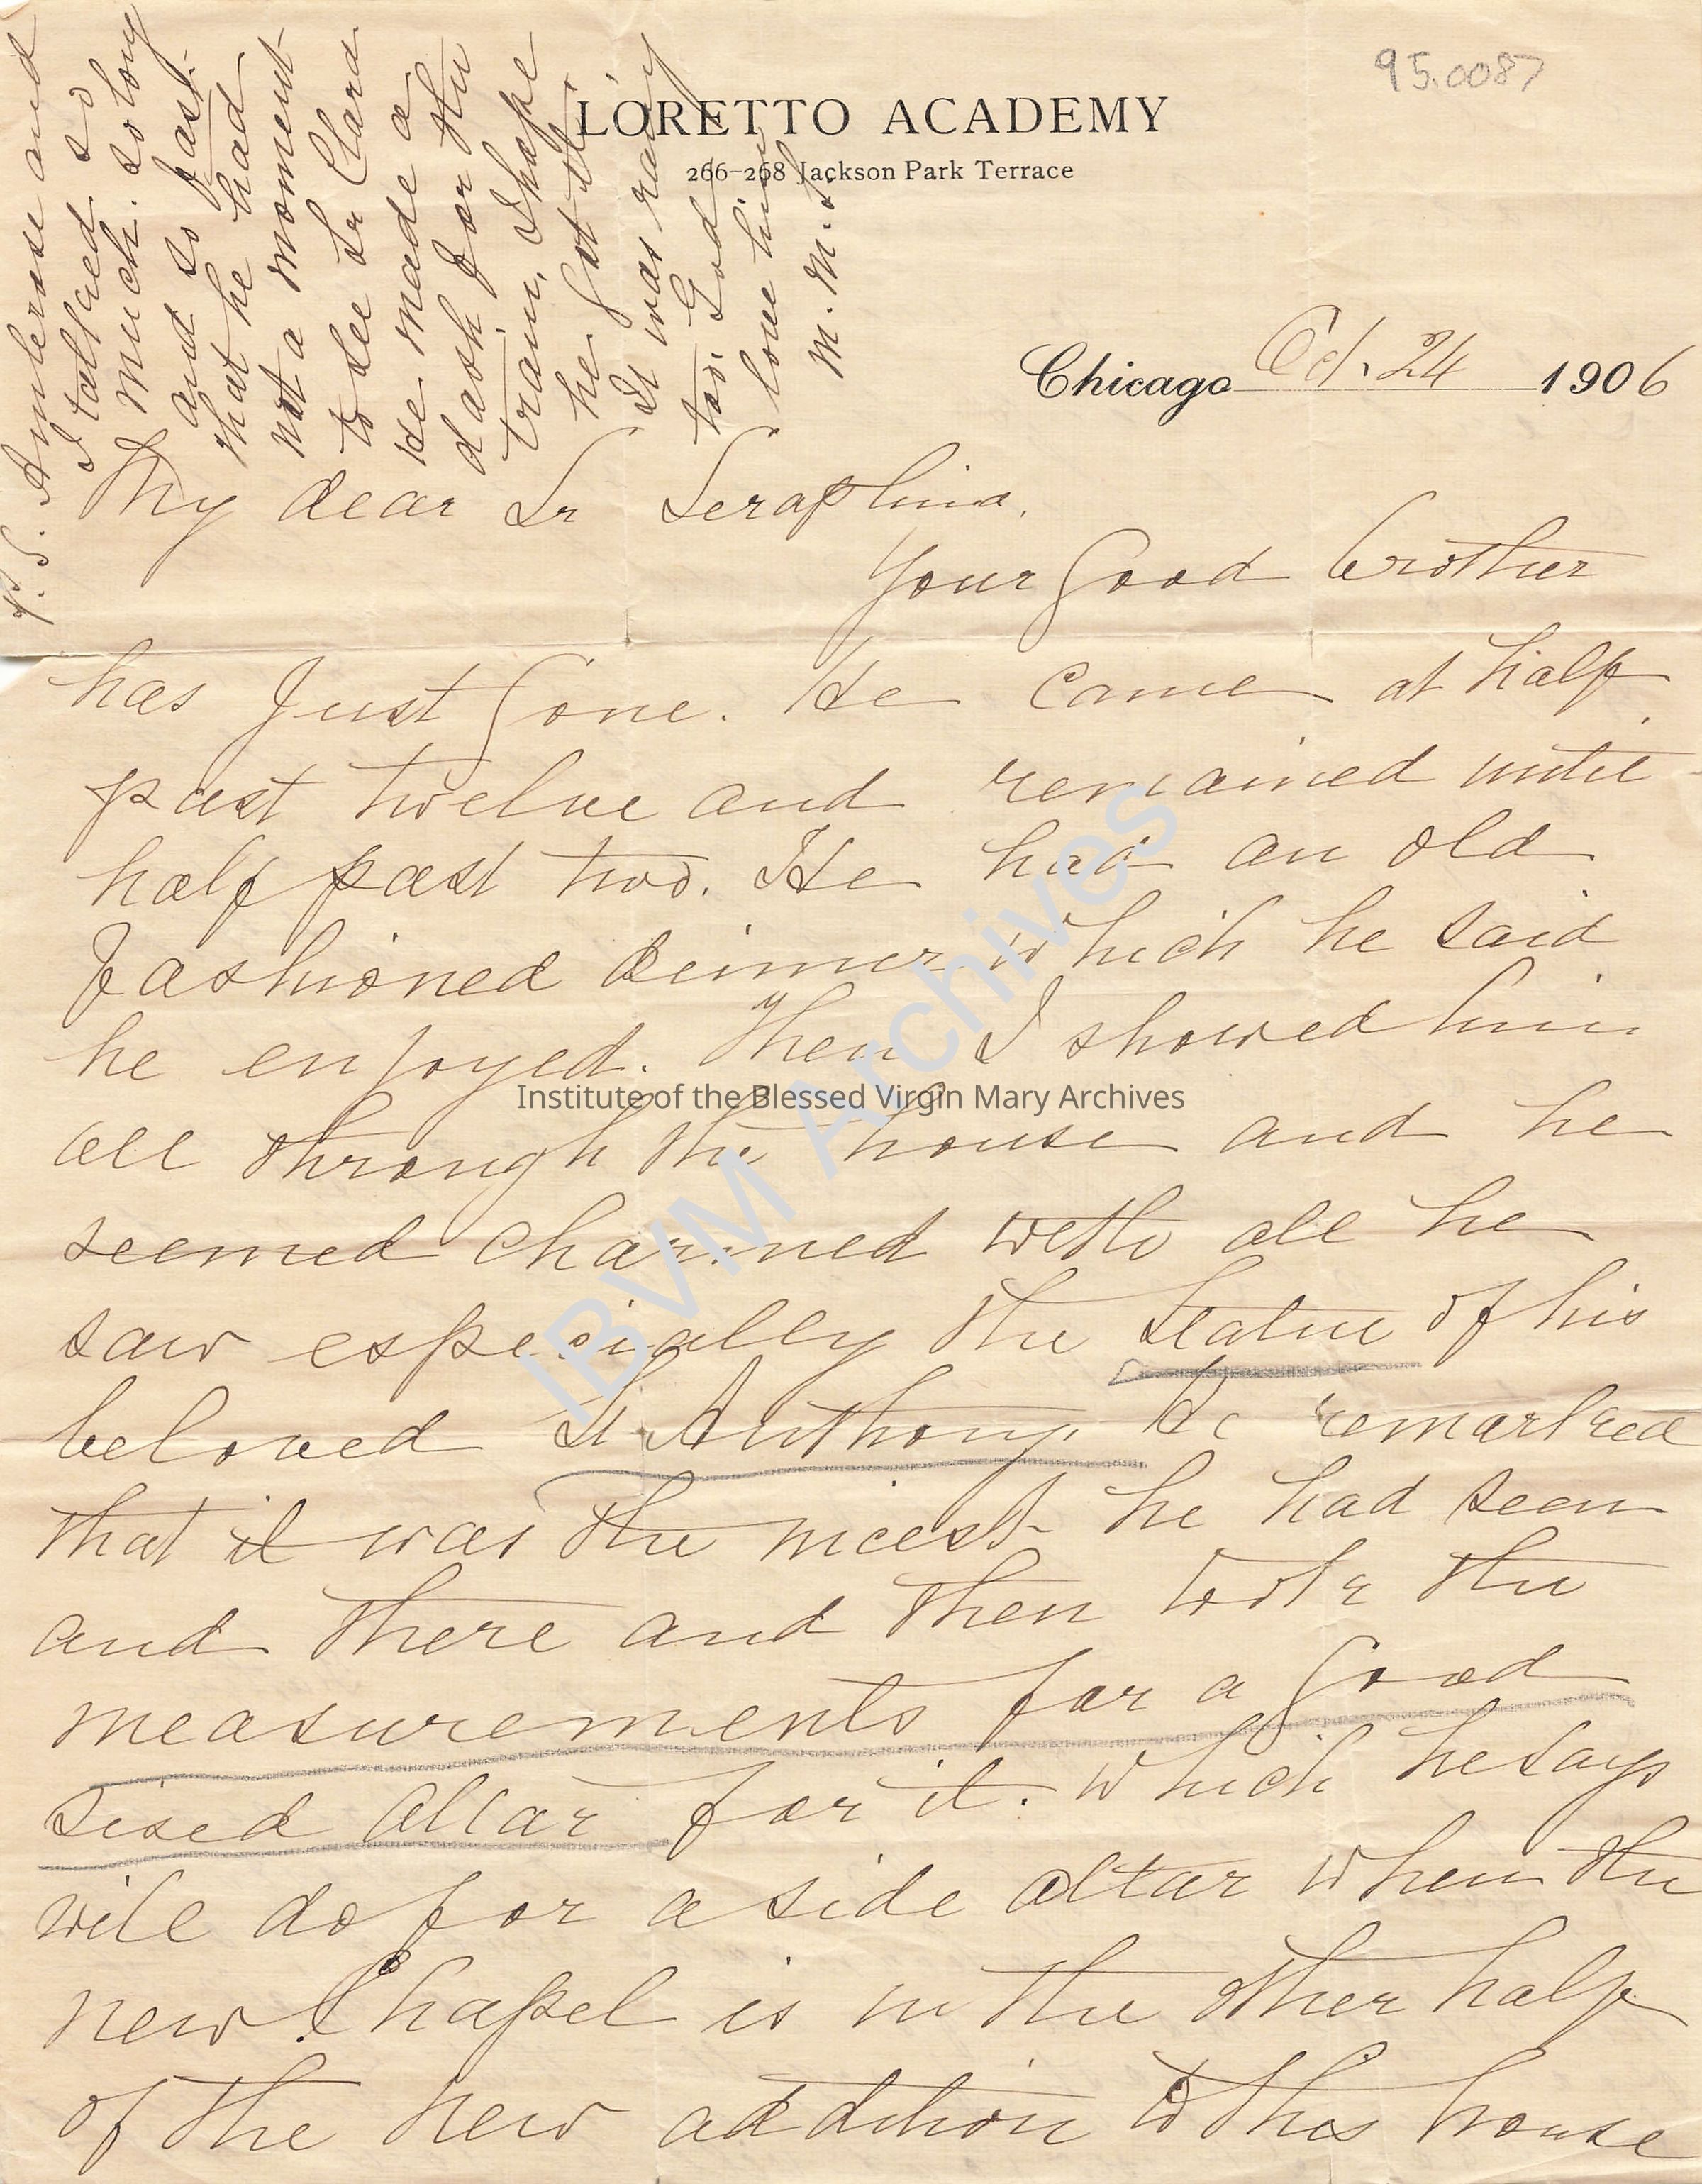 95.0087
LORETTO ACADEMY
266-268 Jackson Park Terrace
Chicago Oct. 24 1906
My dear Sr Seraphina,
Your good brother
has just gone. He came at half
past twelve and remained until
half past two. He had an old
fashioned dinner which he said
he enjoyed. Then I showed him
all through the house and he
seemed charmed with all he
saw especially the statue of his
beloved St Anthony. He remarked
that it was the nicest he had seen
and there and then took the
measurements for a good
sized altar for it. which he says
will do for a side altar when the
new Chapel is in the other half
of the new addition to this house
P.S. Ambrose and
I talked so
much. so long
and so fast
that he had
not a moment
to see Sr Clara
He made a
dash for the
train. I hope
he got it.
It was rainy
too. God
love him
M. M. S.
Institute of the Blessed Virgin Mary Archives
IBVM Archives